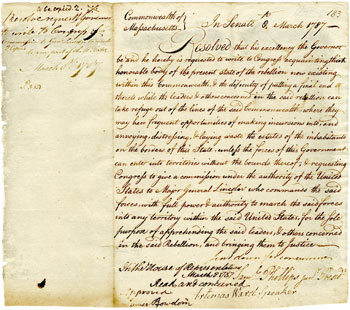 to be copied 2.
Resolve requesting Governour
to write to Congress
March 8 1787
183
Commonwealth of
Massachusetts
In Senate March 8, 1787
Resolved that his excellency the Governor
be and he hereby is requested to write to Congress acquainting that
honorable body of the present state of the rebellion now existing
within this Commonwealth, & the difficulty of putting a final end
thereto while the leaders & others concerned in the said rebellion can
take refuge out of the lines of the said commonwealth, where they
may have frequent opportunities of making incursions into, and
annoying, distressing, & laying waste the estates of the inhabitants
on the borders of this State, unless the forces of this Government
can enter into territories without the bounds thereof; & requesting
Congress to give a commission under the authority of the United
States to Major General Lincoln who commands the said
forces, with full power & authority to march the said forces
into any territory within the said United States, for the sole
purpose of apprehending the said leaders, & others concerned
in the said Rebellion, and bringing them to Justice
Sent down for concurrence
Sam Phillips jun Presdt
In the House of Representatives
March 8 1787
Read and concurred
Artemas Ward Speaker
Approved
James Bowdoin